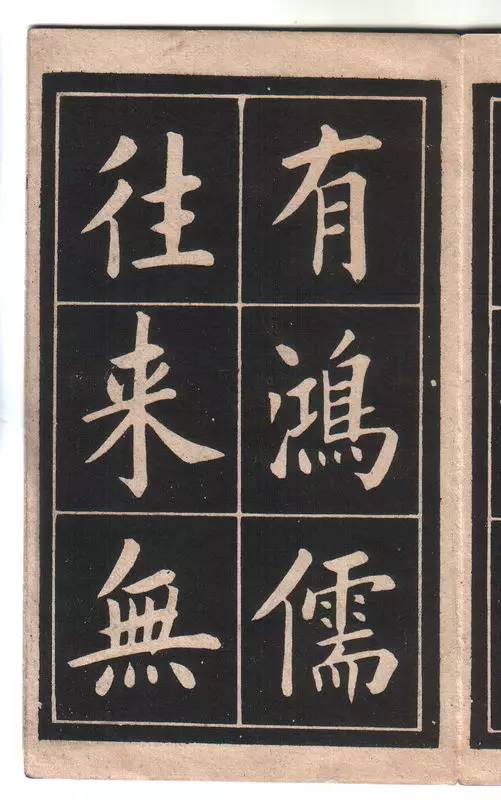 有鴻儒
往来無